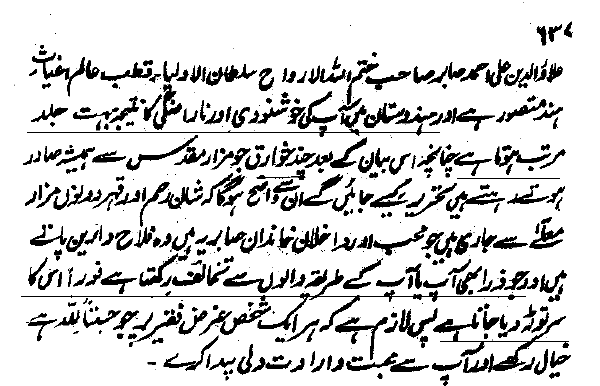 ٦٣٧
علاؤالدین علی احمد صابر صاحب ختم اللہ الارواح سلطان الاولیاء قطب عالم غیاث
ہند متصور ہے اور ہندوستان میں آپ کی خوشنودی اور ناراضگی کا نتیجہ بہت جلد
مرتب ہوتا ہے چنانچہ اس بیان کے بعد چند خوارق جو مزار مقدس سے ہمیشہ صادر
ہوتے رہتے ہیں تحریر کیے جائیں گے ان سے واضح ہوگا کہ شان رحم اور قہر دونوں مزار
معلّٰے سے جاری ہیں جو محب اور داخلان خاندان صابریہ ہیں وہ فلاح دارین پاتے
ہیں اور جو ذرا بھی آپ یا آپ کے طریقہ والوں سے مخالفت رکھتا ہے فوراً اس کا
سر توڑ دیا جاتا ہے پس لازم ہے کہ ہر ایک شخص غرض فقیر پر جو للہ ہے
خیال رکھے اور آپ سے محبت و ارادت دلی پیدا کرے ۔